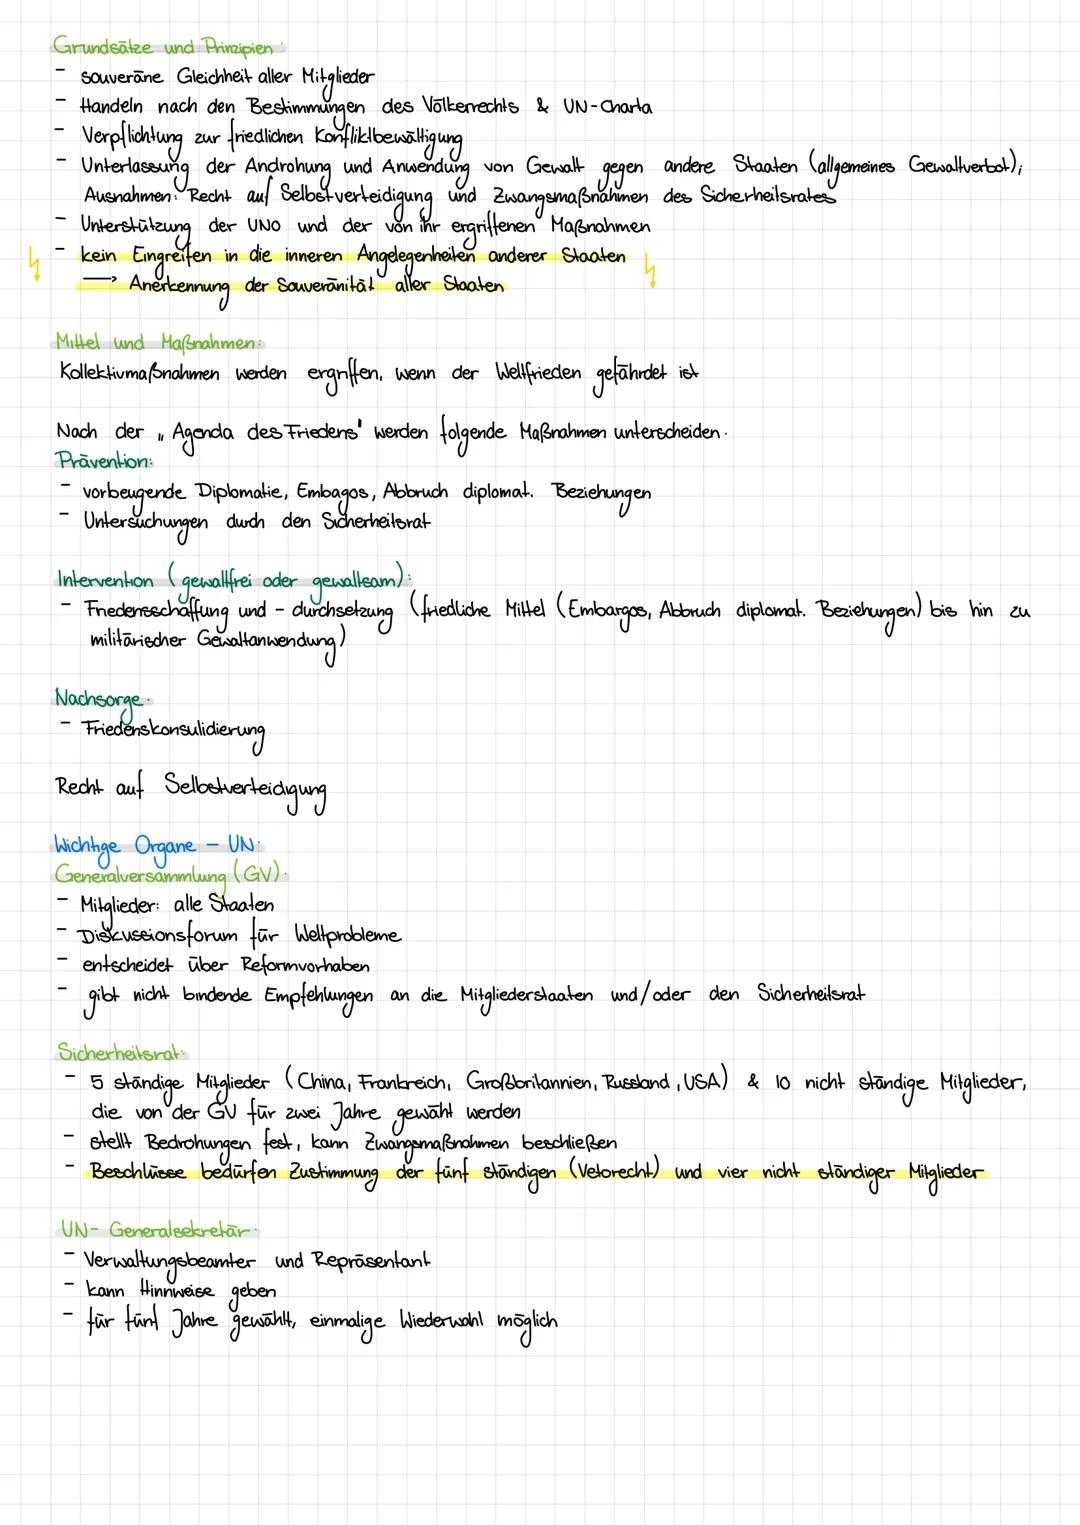 Grundsätze und Prinzipien:
- souveräne Gleichheit aller Mitglieder
- Handeln nach den Bestimmungen des Völkerrechts & UN-Charta
- Verpflichtung zur friedlichen Konfliktbewältigung
- Unterlassung der Androhung und Anwendung von Gewalt gegen andere Staaten (allgemeines Gewaltverbot);
Ausnahmen: Recht auf Selbstverteidigung und Zwangsmaßnahmen des Sicherheitsrates
- Unterstützung der UNO und der von ihr ergriffenen Maßnahmen
- kein Eingreifen in die inneren Angelegenheiten anderer Staaten
→ Anerkennung der Souveränität aller Staaten
Mittel und Maßnahmen:
Kollektivmaßnahmen werden ergriffen, wenn der Weltfrieden gefährdet ist
Nach der „Agenda des Friedens" werden folgende Maßnahmen unterscheiden:
Prävention:
- vorbeugende Diplomatie, Embagos, Abbruch diplomat. Beziehungen
- Untersuchungen durch den Sicherheitsrat
Intervention (gewaltfrei oder gewaltsam):
- Friedensschaffung und -durchsetzung (friedliche Mittel (Embargos, Abbruch diplomat. Beziehungen) bis hin zu
militärischer Gewaltanwendung)
Nachsorge:
- Friedenskonsulidierung
Recht auf Selbstverteidigung
Wichtige Organe - UN:
Generalversammlung (GV):
- Mitglieder: alle Staaten
- Diskussionsforum für Weltprobleme
- entscheidet über Reformvorhaben
- gibt nicht bindende Empfehlungen an die Mitgliederstaaten und/oder den Sicherheitsrat
Sicherheitsrat:
- 5 ständige Mitglieder (China, Frankreich, Großbritannien, Russland, USA) & 10 nicht ständige Mitglieder,
die von der GV für zwei Jahre gewäht werden
- stellt Bedrohungen fest, kann Zwangsmaßnahmen beschließen
- Beschlüsse bedürfen Zustimmung der fünf ständigen (Vetorecht) und vier nicht ständiger Mitglieder
UN- Generalsekretär:
- Verwaltungsbeamter und Repräsentant
- kann Hinnweise geben
- für fünf Jahre gewählt, einmalige Wiederwahl möglich